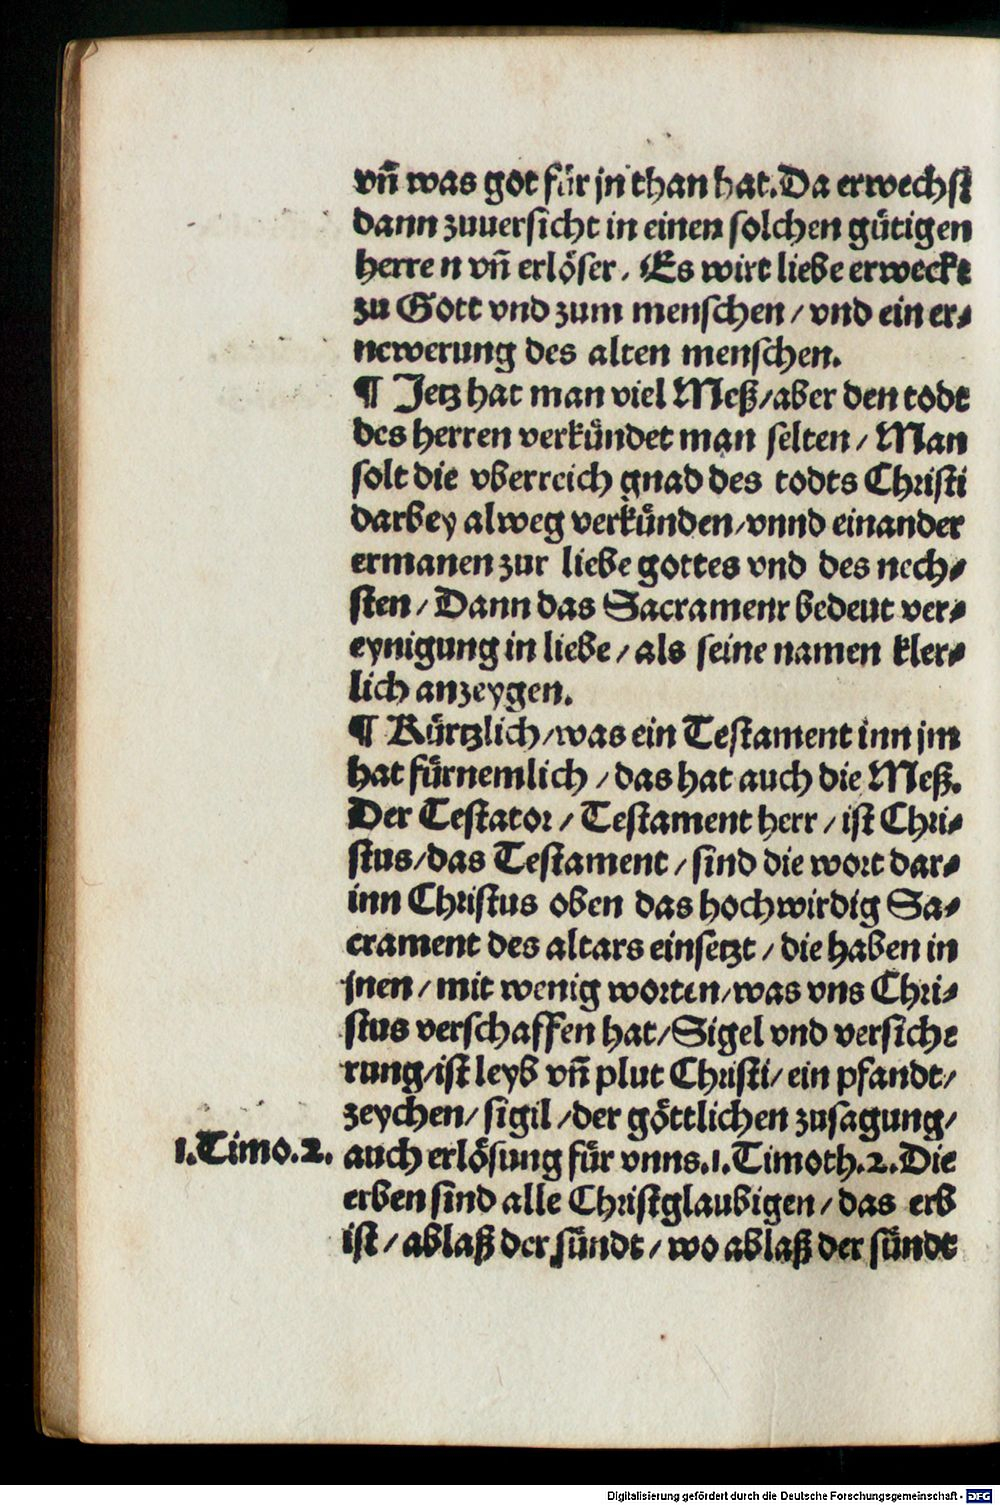 vñ was got für jn than hat. Da erwechst
dann zuuersicht in einen solchen gütigen
herren vñ erlöser. Es wirt liebe erweckt
zu Gott vnd zum menschen / vnd ein er⸗
newerung des alten menschen.
¶ Jetz hat man viel Meß / aber den todt
des herren verkündet man selten / Man
solt die vberreich gnad des todts Christi
darbey alweg verkünden / vnnd einander
ermanen zur liebe gottes vnd des nech⸗
sten / Dann das Sacrament bedeut ver⸗
eynigung in liebe / als seine namen kler⸗
lich anzeygen.
¶ Kürtzlich / was ein Testament inn jm
hat fürnemlich / das hat auch die Meß.
Der Testator / Testament herr / ist Chri⸗
stus / das Testament / sind die wort dar⸗
inn Christus oben das hochwirdig Sa⸗
crament des altars einsetzt / die haben in
jnen / mit wenig worten / was vns Chri⸗
stus verschaffen hat / Sigel vnd versiche
rung / ist leyb vñ plut Christi / ein pfandt /
zeychen / sigil / der göttlichen zusagung /
1. Timo. 2. auch erlösung für vnns. 1. Timoth. 2. Die
erben sind alle Christglaubigen / das erb
ist / ablaß der sündt / wo ablaß der sündt
Digitalisierung gefördert durch die Deutsche Forschungsgemeinschaft - DFG